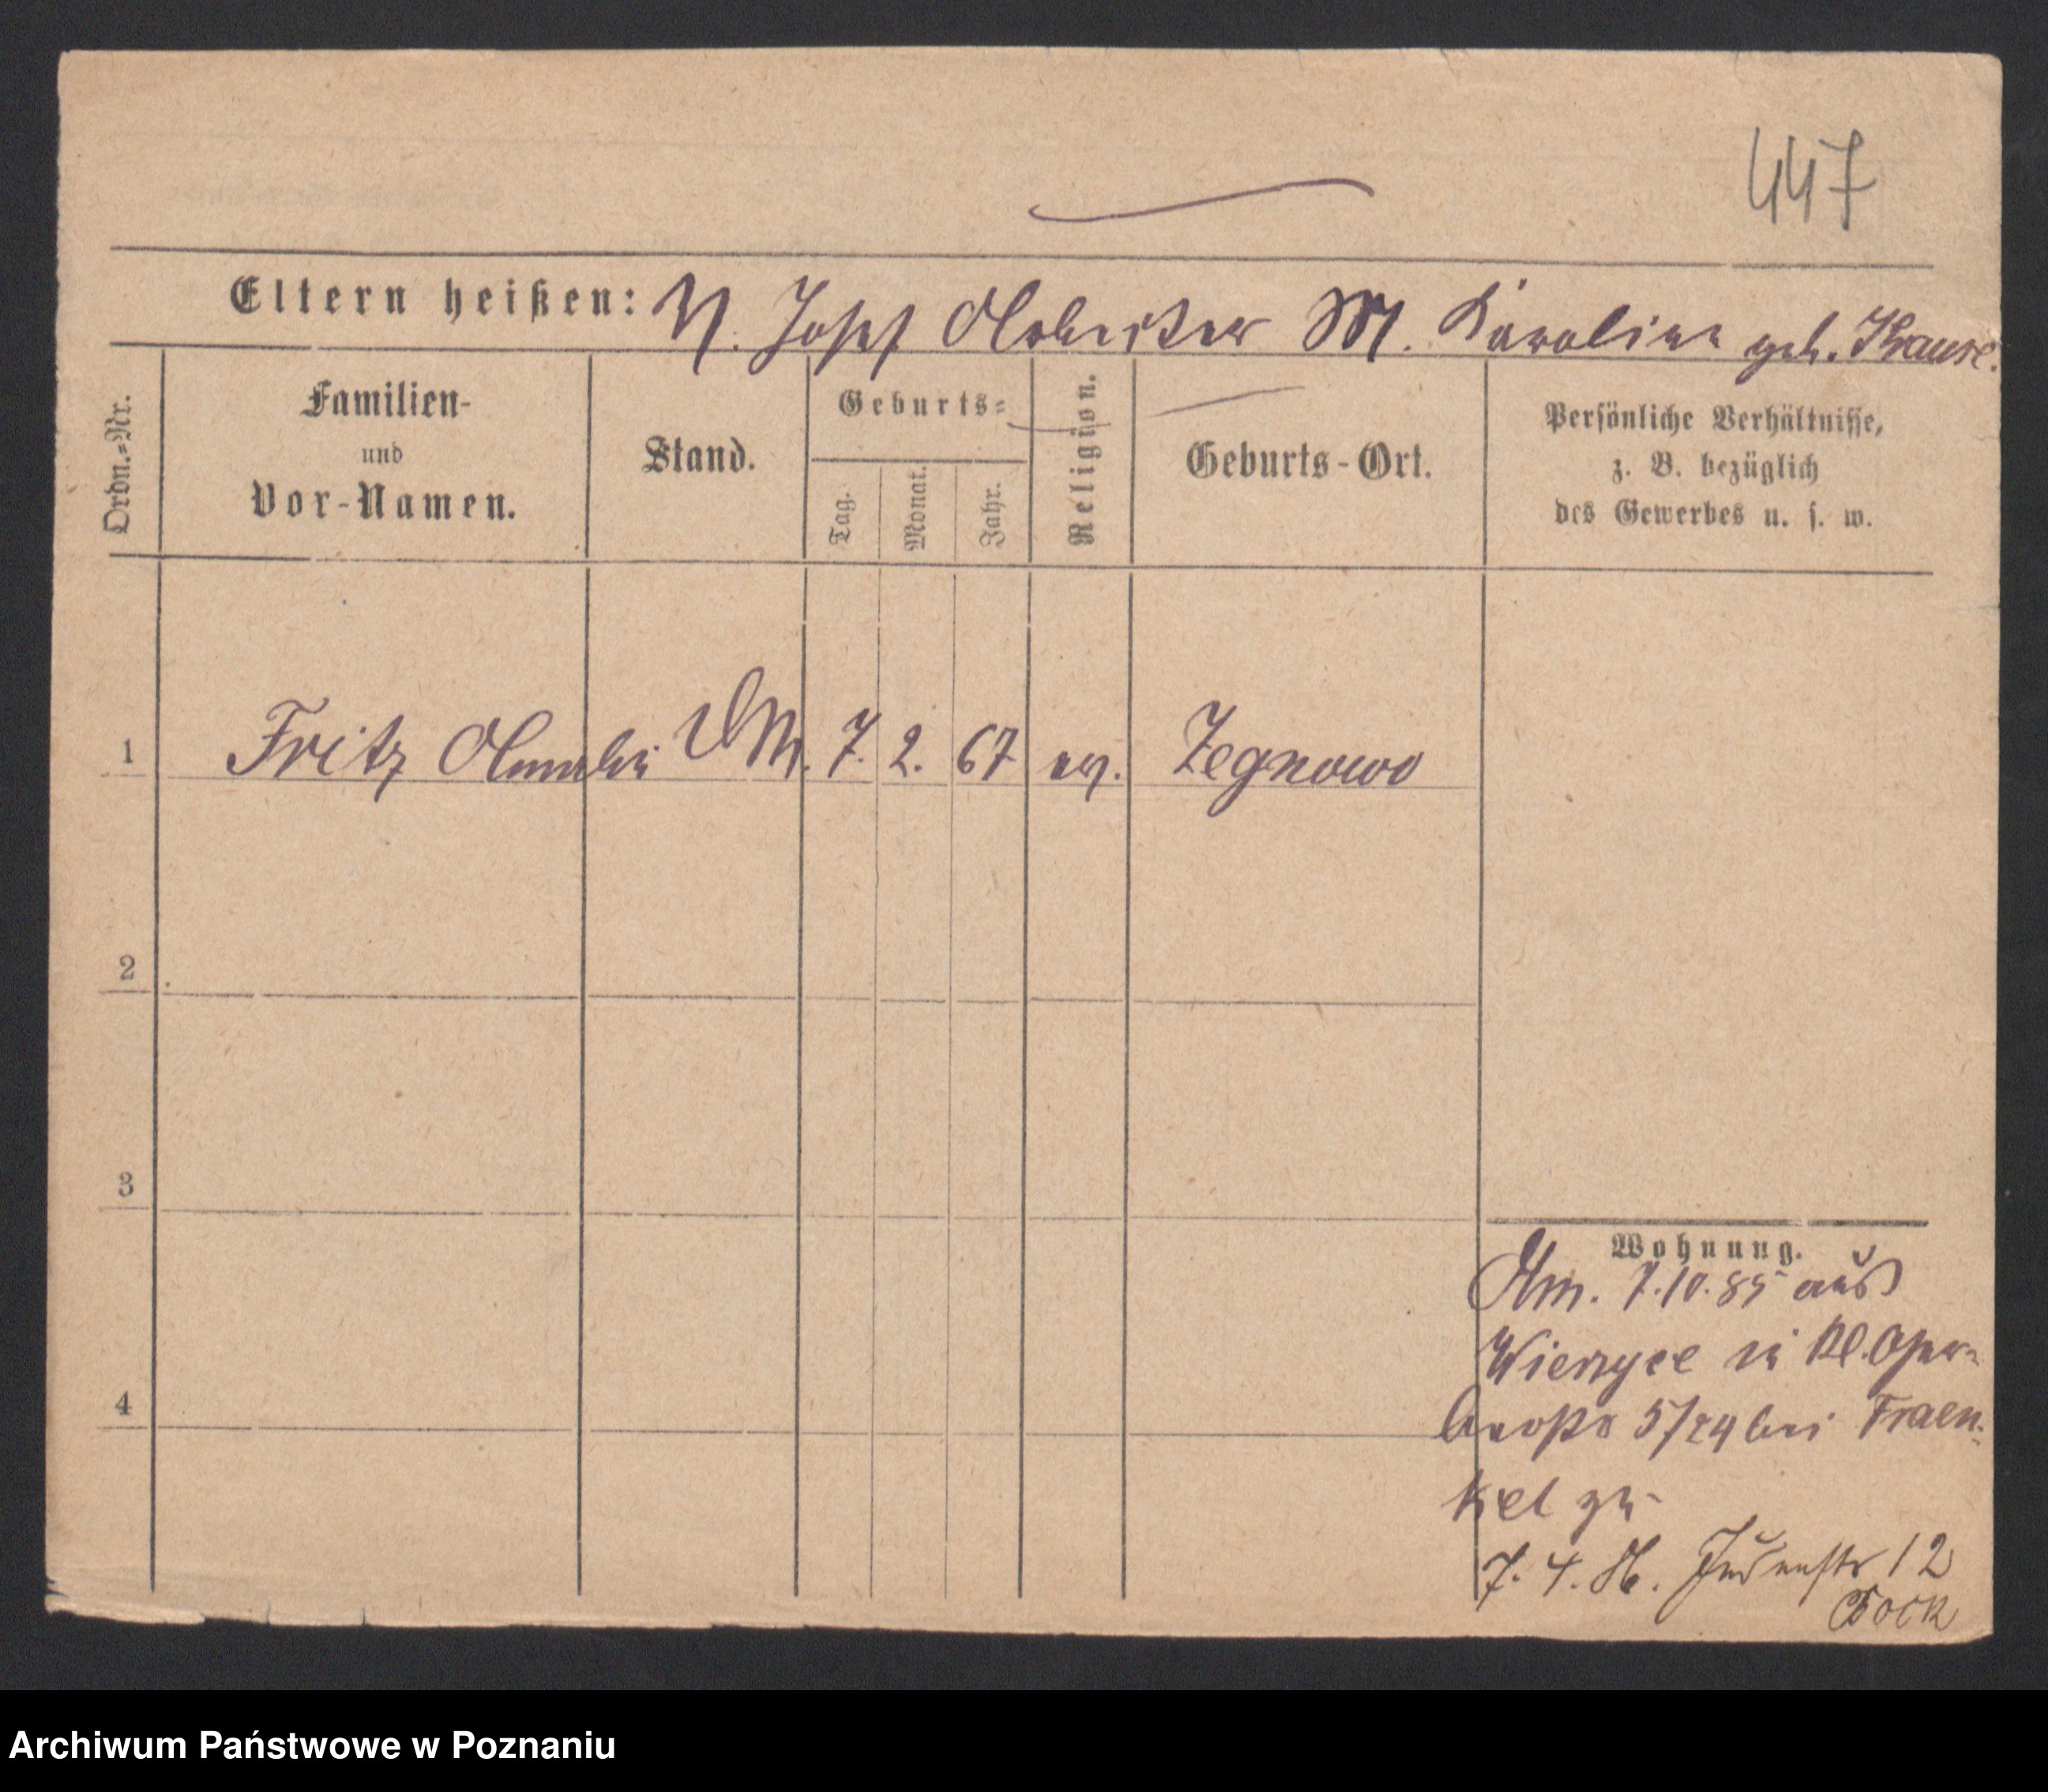 447
Eltern heißen: V. Josef Arbeiter M. Karoline geb. Krause.
Ordn.-Nr.
Familien-
und
Vor-Namen.
Stand.
Geburts-
Tag.
Monat.
Jahr.
Religion.
Geburts-Ort.
Persönliche Verhältnisse,
z. B. bezüglich
des Gewerbes u. s. w.
1 Fritz 7. 2. 67 ev. Zegnowo
2
3
4
Wohnung.
Am. 7.10.85 aus
in Kl. Ger-
berstr 5/ bei Fraen-
kel zu
7. 4. 86. Judenstr 12
Bock
Archiwum Państwowe w Poznaniu